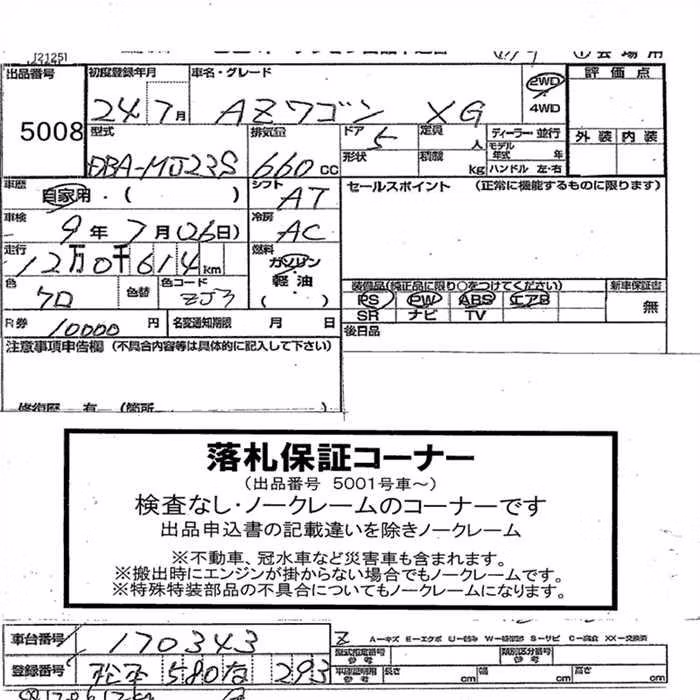 J21251
出品番号 初度登録年月 車名・グレード 2WD 評価点
5008 24.7月 AZワゴン XG 4WD
型式 排気量 ドア 5 定員 人 ディーラー 並行 外装 内装
DBA-MJ23S 660cc 形状 積載 kg モデル年式 年 ハンドル 左・右
車歴 自家用・( ) シフト AT セールスポイント (正常に機能するものに限ります)
車検 9年7月(26日) 冷房 AC
走行 12万0千614km 燃料 ガソリン 軽油 ( )
色 クロ 色替 色コード ZJ3 装備品(純正品に限り○をつけてください) 新車保証書
PS PW ABS エアB 無
SR ナビ TV
R券 10000円 名変通知期限 月 日 後日品
注意事項申告欄 (不具合内容等は具体的に記入して下さい)
修復歴 有 (箇所 )
落札保証コーナー
(出品番号 5001号車~)
検査なし・ノークレームのコーナーです
出品申込書の記載違いを除きノークレーム
※不動車、冠水車など災害車も含まれます。
※搬出時にエンジンが掛からない場合でもノークレームです。
※特殊特装部品の不具合についてもノークレームになります。
車台番号 170343
A-キズ E-エクボ U-凹み S-サビ C-腐食 XX-交換済
型式指定番号 参考 類別区分番号 参考
登録番号 松本 580 な 293 長さ cm 幅 cm 高さ cm